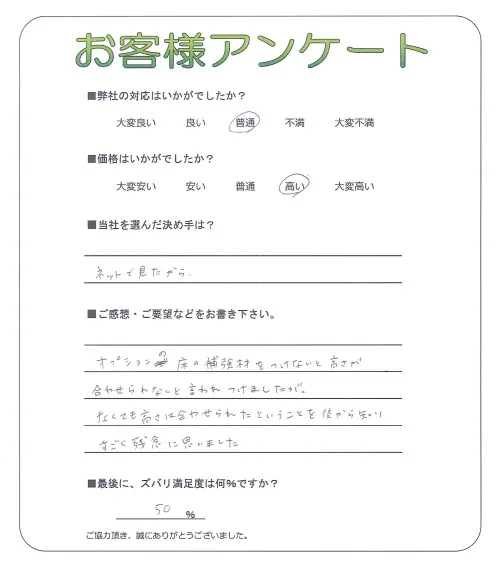 お客様アンケート
■弊社の対応はいかがでしたか？
大変良い 良い 普通 不満 大変不満
■価格はいかがでしたか？
大変安い 安い 普通 高い 大変高い
■当社を選んだ決め手は？
ネットで見たから.
■ご感想・ご要望などをお書き下さい。
オプションの床の補強材をつけないと高さが
合わせられないと言われつけましたが。
なくても高さは合わせられたということを後から知り
すごく残念に思いました
■最後に、ズバリ満足度は何%ですか？
50 %
ご協力頂き、誠にありがとうございました。